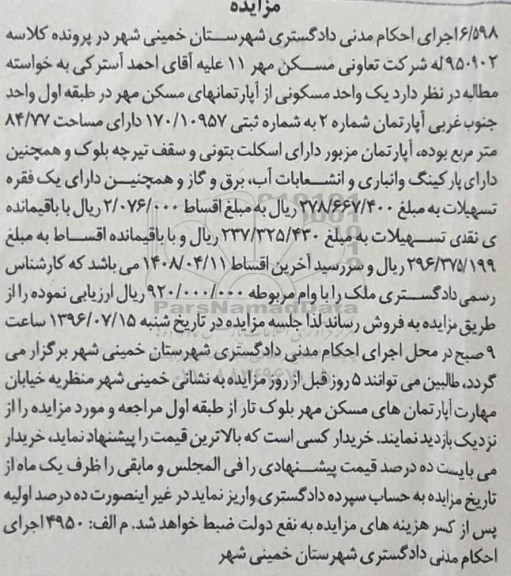 مزایده
۶/۵۹۸ اجرای احکام مدنی دادگستری شهرستان خمینی شهر در پرونده کلاسه
۹۵۰۹۰۲ له شرکت تعاونی مسکن مهر ۱۱ علیه آقای احمد آسترکی به خواسته
مطالبه در نظر دارد یک واحد مسکونی از آپارتمانهای مسکن مهر در طبقه اول واحد
جنوب غربی آپارتمان شماره ۲ به شماره ثبتی ۱۷۰/۱۰۹۵۷ دارای مساحت ۸۴/۷۷
متر مربع بوده، آپارتمان مزبور دارای اسکلت بتونی و سقف تیرچه بلوک و همچنین
دارای پارکینگ وانباری و انشعابات آب، برق و گاز و همچنین دارای یک فقره
تسهیلات به مبلغ ۲۷۸/۶۶۷/۴۰۰ ریال به مبلغ اقساط ۲/۰۷۶/۰۰۰ ریال با باقیمانده
ی نقدی تسهیلات به مبلغ ۲۳۷/۳۲۵/۴۳۰ ریال و با باقیمانده اقساط به مبلغ
۲۹۶/۳۷۵/۱۹۹ ریال و سررسید آخرین اقساط ۱۴۰۸/۰۴/۱۱ می باشد که کارشناس
رسمی دادگستری ملک را با وام مربوطه ۹۲۰/۰۰۰/۰۰۰ ریال ارزیابی نموده را از
طریق مزایده به فروش رساند لذا جلسه مزایده در تاریخ شنبه ۱۳۹۶/۰۷/۱۵ ساعت
۹ صبح در محل اجرای احکام مدنی دادگستری شهرستان خمینی شهر برگزار می
گردد، طالبین می توانند ۵ روز قبل از روز مزایده به نشانی خمینی شهر منظریه خیابان
مهارت آپارتمان های مسکن مهر بلوک تاراز طبقه اول مراجعه و مورد مزایده را از
نزدیک بازدید نمایند. خریدار کسی است که بالاترین قیمت را پیشنهاد نماید، خریدار
می بایست ده درصد قیمت پیشنهادی را فی المجلس و مابقی را ظرف یک ماه از
تاریخ مزایده به حساب سپرده دادگستری واریز نماید در غیر اینصورت ده درصد اولیه
پس از کسر هزینه های مزایده به نفع دولت ضبط خواهد شد. م الف: ۴۹۵۰ اجرای
احکام مدنی دادگستری شهرستان خمینی شهر
ParsNamadData